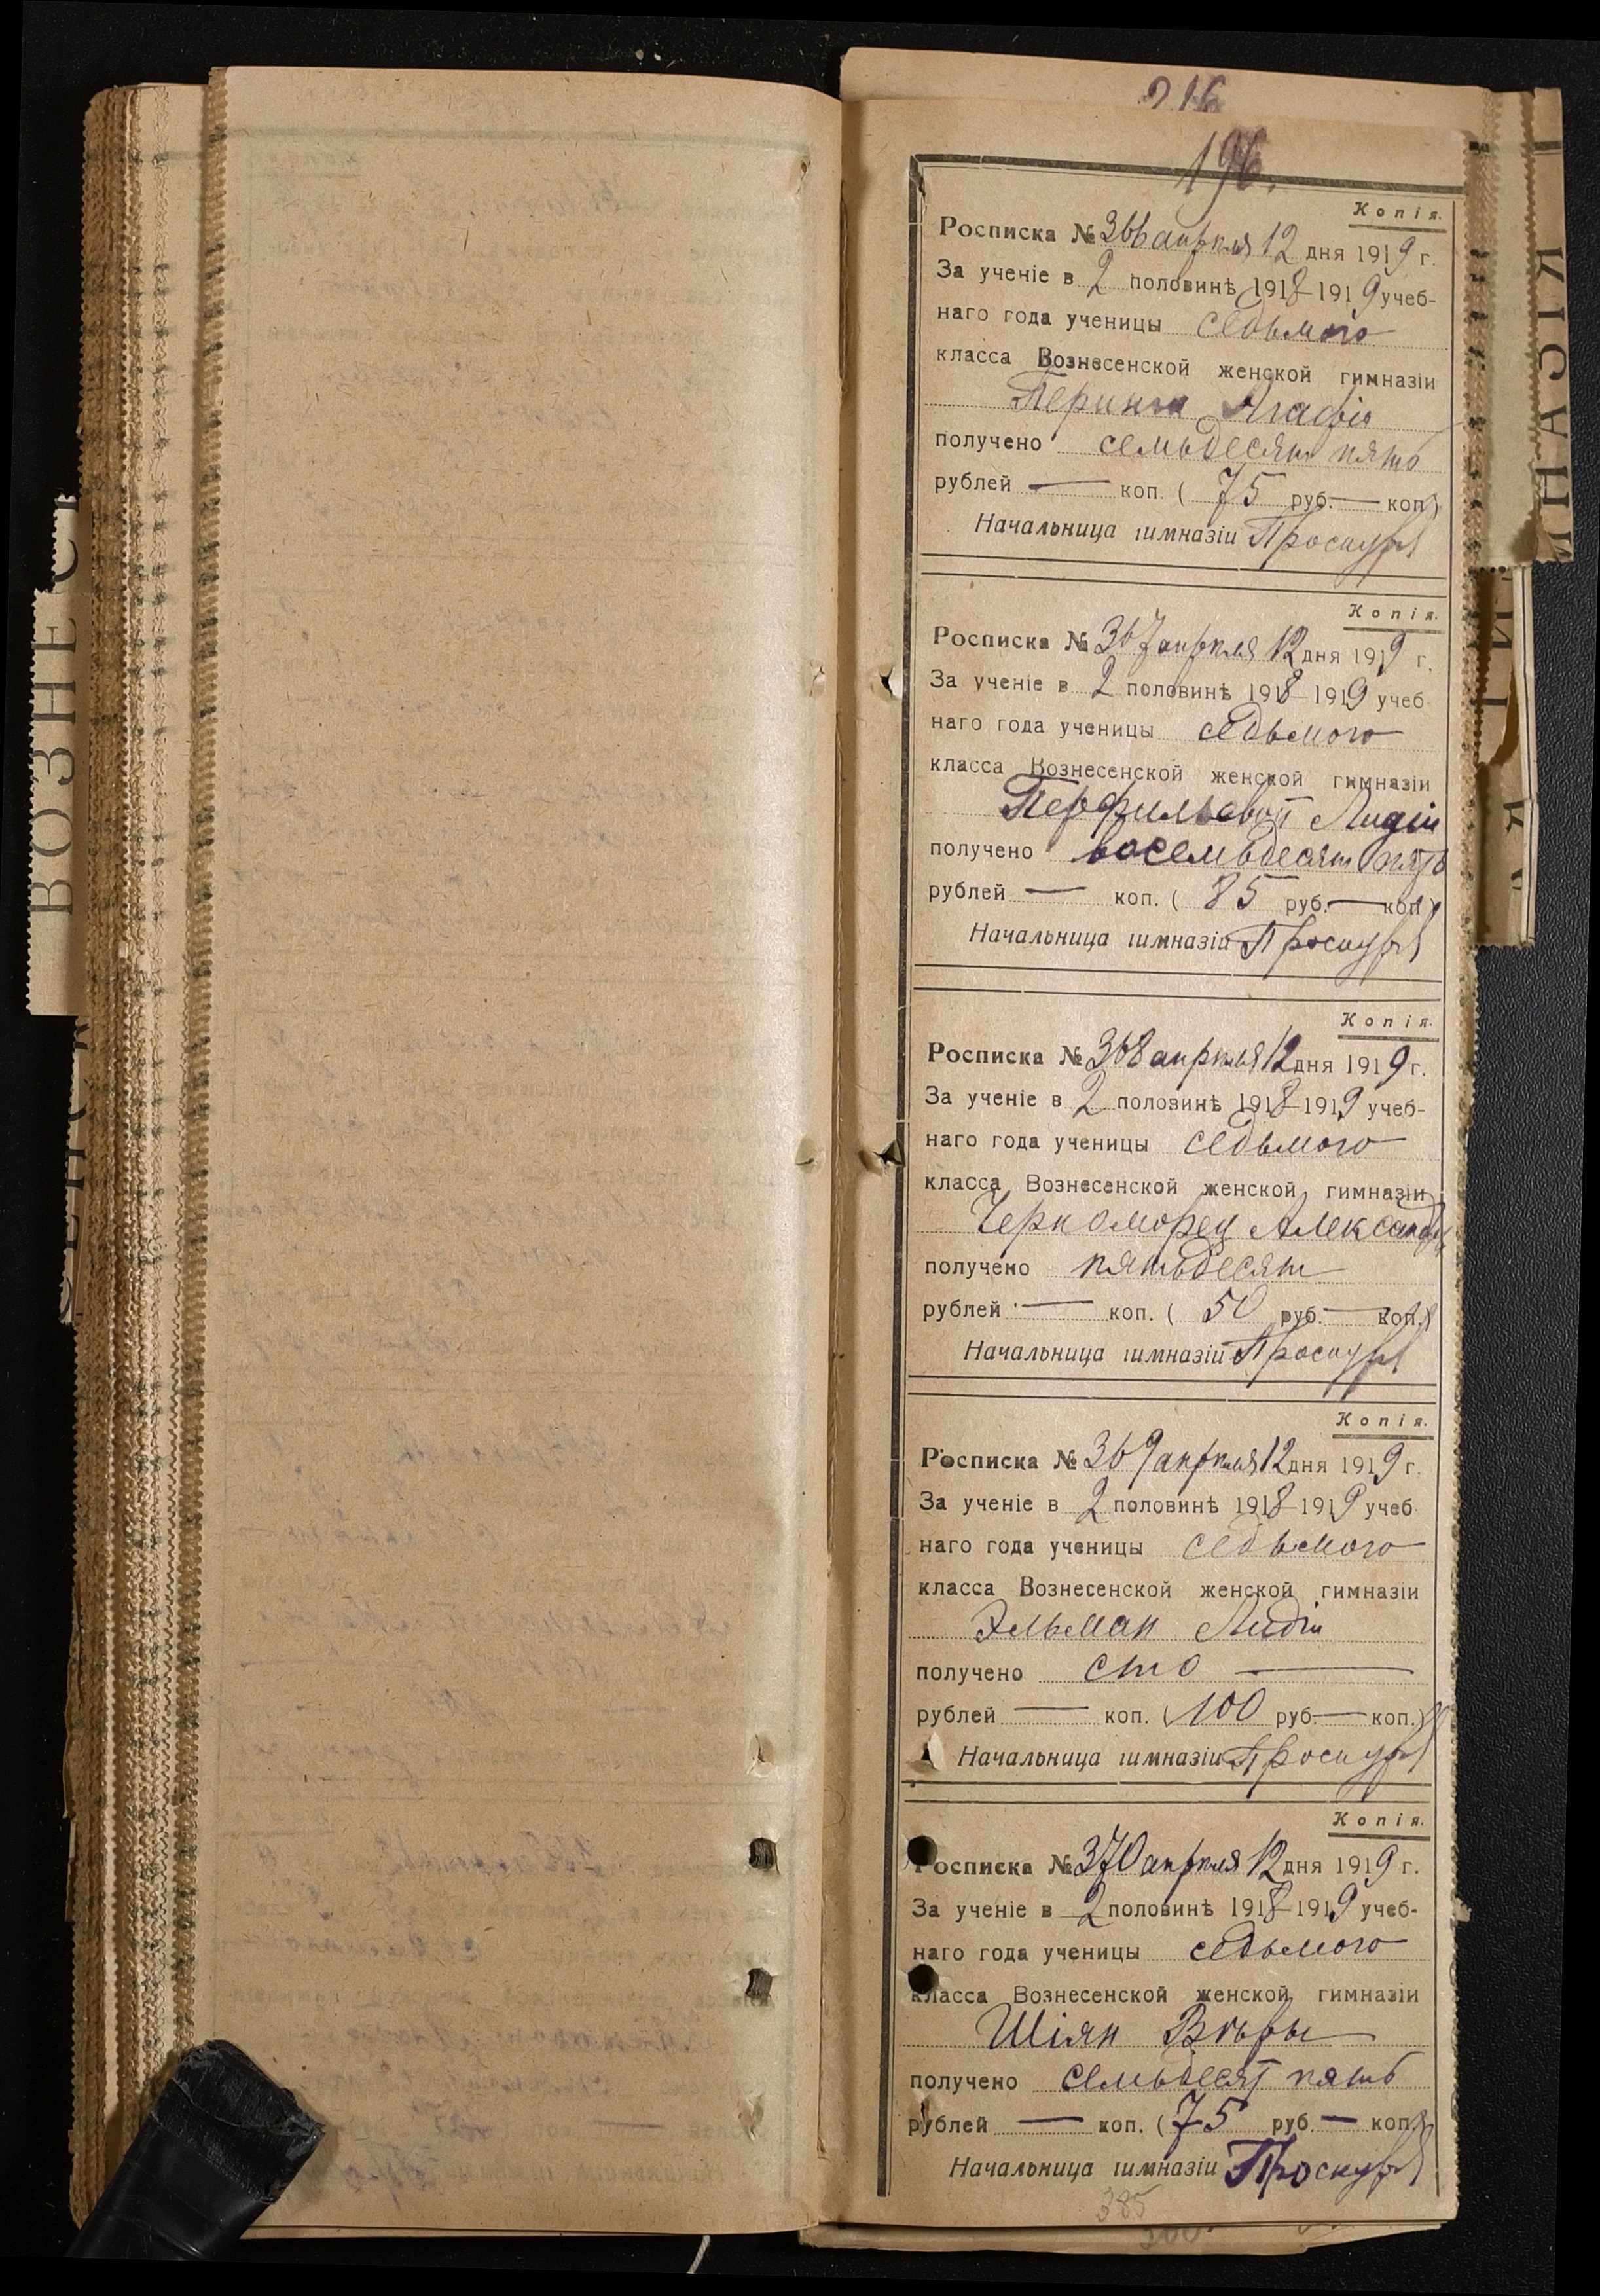 216
196.
Копія.
Росписка № 366 апрѣля 12 дня 1919 г.
За ученіе в 2 половинѣ 1918-1919 учеб-
наго года ученицы седьмого
класса Вознесенской женской гимназіи
Агафіи
получено семьдесят пять
рублей — коп. ( 75 руб. — коп.)
Начальница гимназіи
Копія.
Росписка № 367 апрѣля 12 дня 1919 г.
За ученіе в 2 половинѣ 1918-1919 учеб
наго года ученицы седьмого
класса Вознесенской женской гимназіи
Перфильевой Лидіи
получено восемьдесят пять
рублей — коп. ( 85 руб. — коп.)
Начальница гимназіи
Копія.
Росписка № 368 апрѣля 12 дня 1919 г.
За ученіе в 2 половинѣ 1918-1919 учеб-
наго года ученицы седьмого
класса Вознесенской женской гимназіи
Черноморец Александры
получено пятьдесят
рублей — коп. ( 50 руб. — коп.)
Начальница гимназіи
Копія.
Росписка № 369 апрѣля 12 дня 1919 г.
За ученіе в 2 половинѣ 1918-1919 учеб
наго года ученицы седьмого
класса Вознесенской женской гимназіи
Эльман Лидіи
получено сто —
рублей — коп. ( 100 руб. — коп.)
Начальница гимназіи
Копія.
Росписка № 370 апрѣля 12 дня 1919 г.
За ученіе в 2 половинѣ 1918-1919 учеб-
наго года ученицы седьмого
класса Вознесенской женской гимназіи
Шіян Вѣры
получено семьдесят пять
рублей — коп. ( 75 руб. — коп.)
Начальница гимназіи
385
ВОЗНЕС